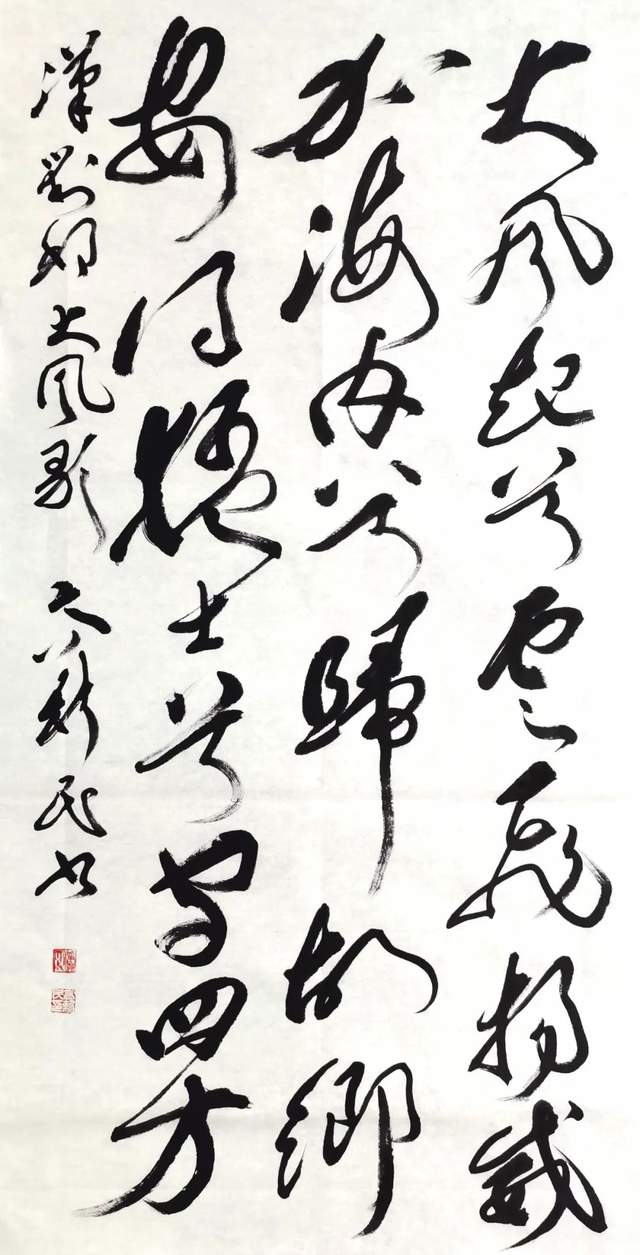 大風起兮雲飛揚威
加海內兮歸故鄉
安得猛士兮守四方
漢劉邦大風歌 新民書